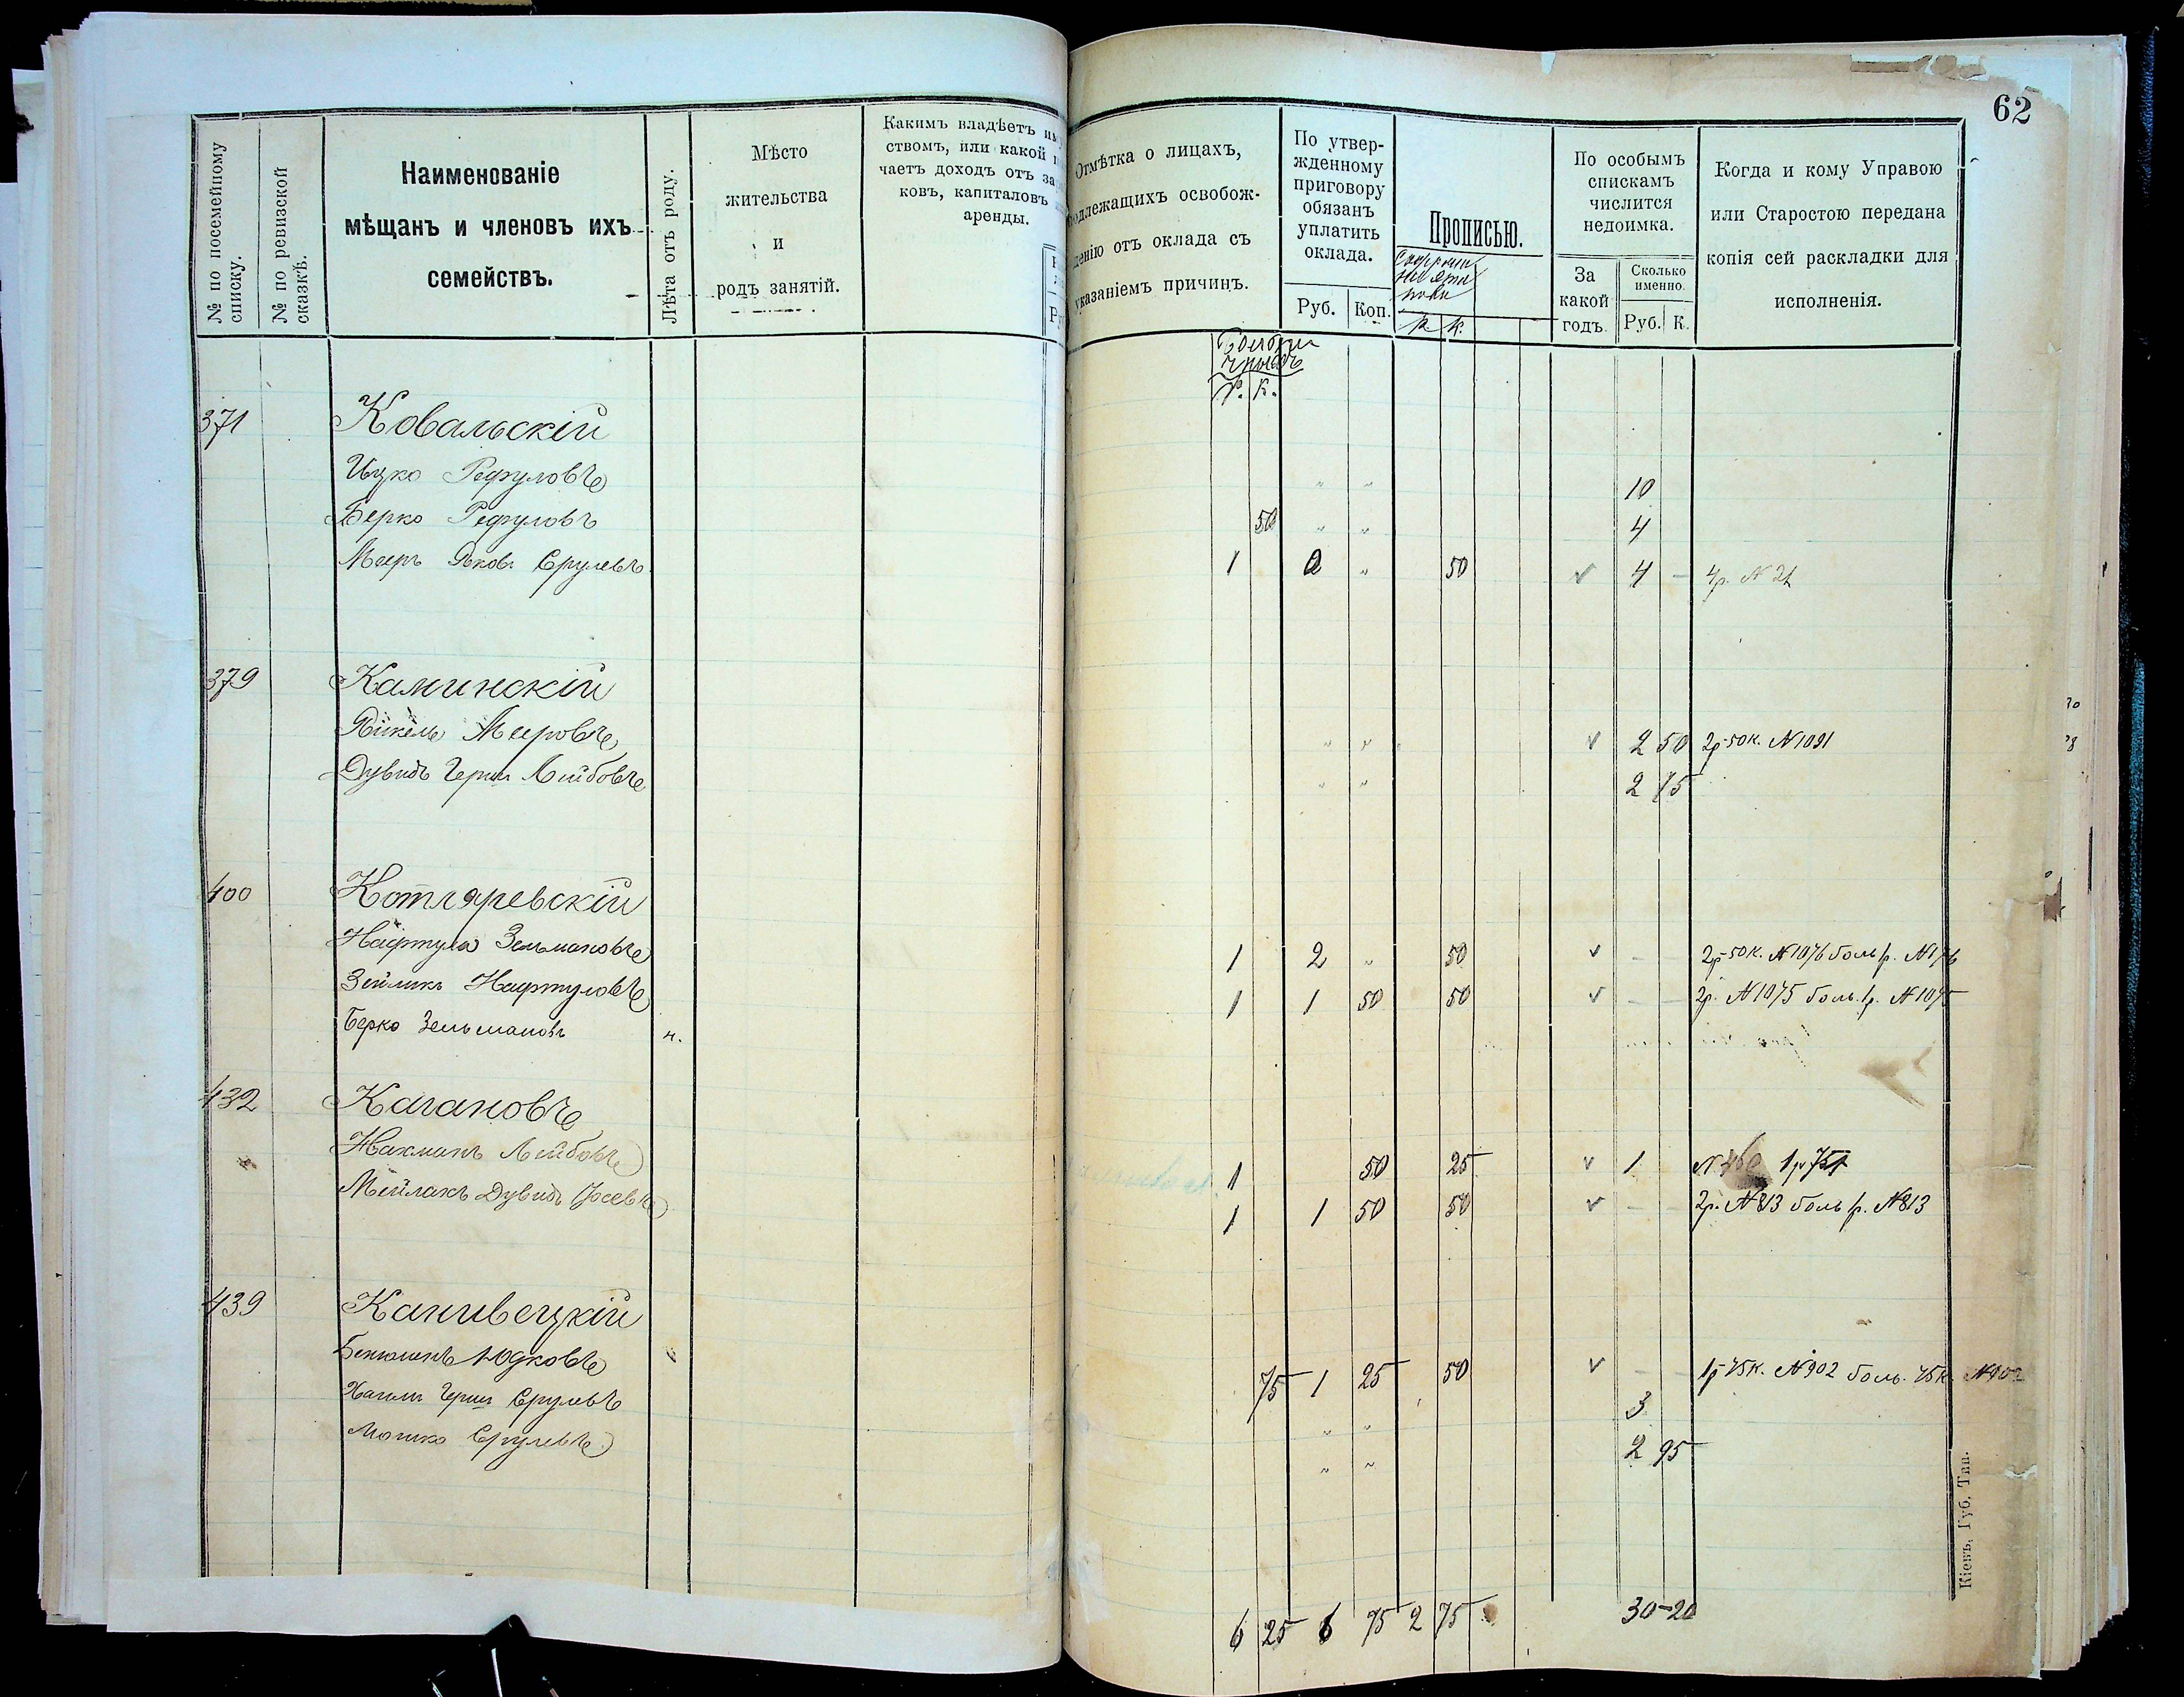 62
№ по посемейному списку.
№ по ревизской сказкѣ.
Наименованіе
мѣщанъ и членовъ ихъ
семействъ.
Лѣта отъ роду.
Мѣсто
жительства
и
родъ занятій.
Какимъ владѣетъ
ствомъ, или какой
чаетъ доходъ отъ
ковъ, капиталовъ
аренды.
Отмѣтка о лицахъ,
подлежащихъ освобож-
денію отъ оклада съ
указаніемъ причинъ.
По утвер-
жденному
приговору
обязанъ
уплатить
оклада.
Руб. Коп.
Прописью.
р. к.
По особымъ
спискамъ
числится
недоимка.
За
какой
годъ.
Сколько
именно.
Руб. К.
Когда и кому Управою
или Старостою передана
копія сей раскладки для
исполненія.
Р. К.
371 Ковальскій
Ицко Рефуловъ " " 10
Берко Рефуловъ 50 " " 4
Мееръ Янков. Срулевъ 1 2 " 50 v 4 - 4р. N 21
379 Каминскій
Янкель Мееровъ " " v 2 50 2р 50к. N 1091
Дувидъ Герш Лейбовъ " " 2 75
400 Котляревскій
Нафтула Зельмановъ 1 2 " 50 v - 2р 50к. N 1076 боль 1р. N 1076
Зейликъ Нафтуловъ 1 1 50 50 v - - 2р. N 1075 боль. 1р. N 1075
Берко Зельмановъ н.
432 Кагановъ
Нахманъ Лейбовъ 1 50 25 v 1 1р 75к
Мейлахъ Дувидъ Іосевъ 1 1 50 50 v - - 2р. N 813 боль 1р. N 813
439 Канивецкій
Бенюменъ Юдковъ 75 1 25 50 v - - 1р 75к. N 902 боль. 75к. N 902
Хаимъ Герш Срулевъ " " 3
Мошко Срулевъ " " 2 95
6 25 6 75 2 75 30-20
Кіевъ, Губ. Тип.